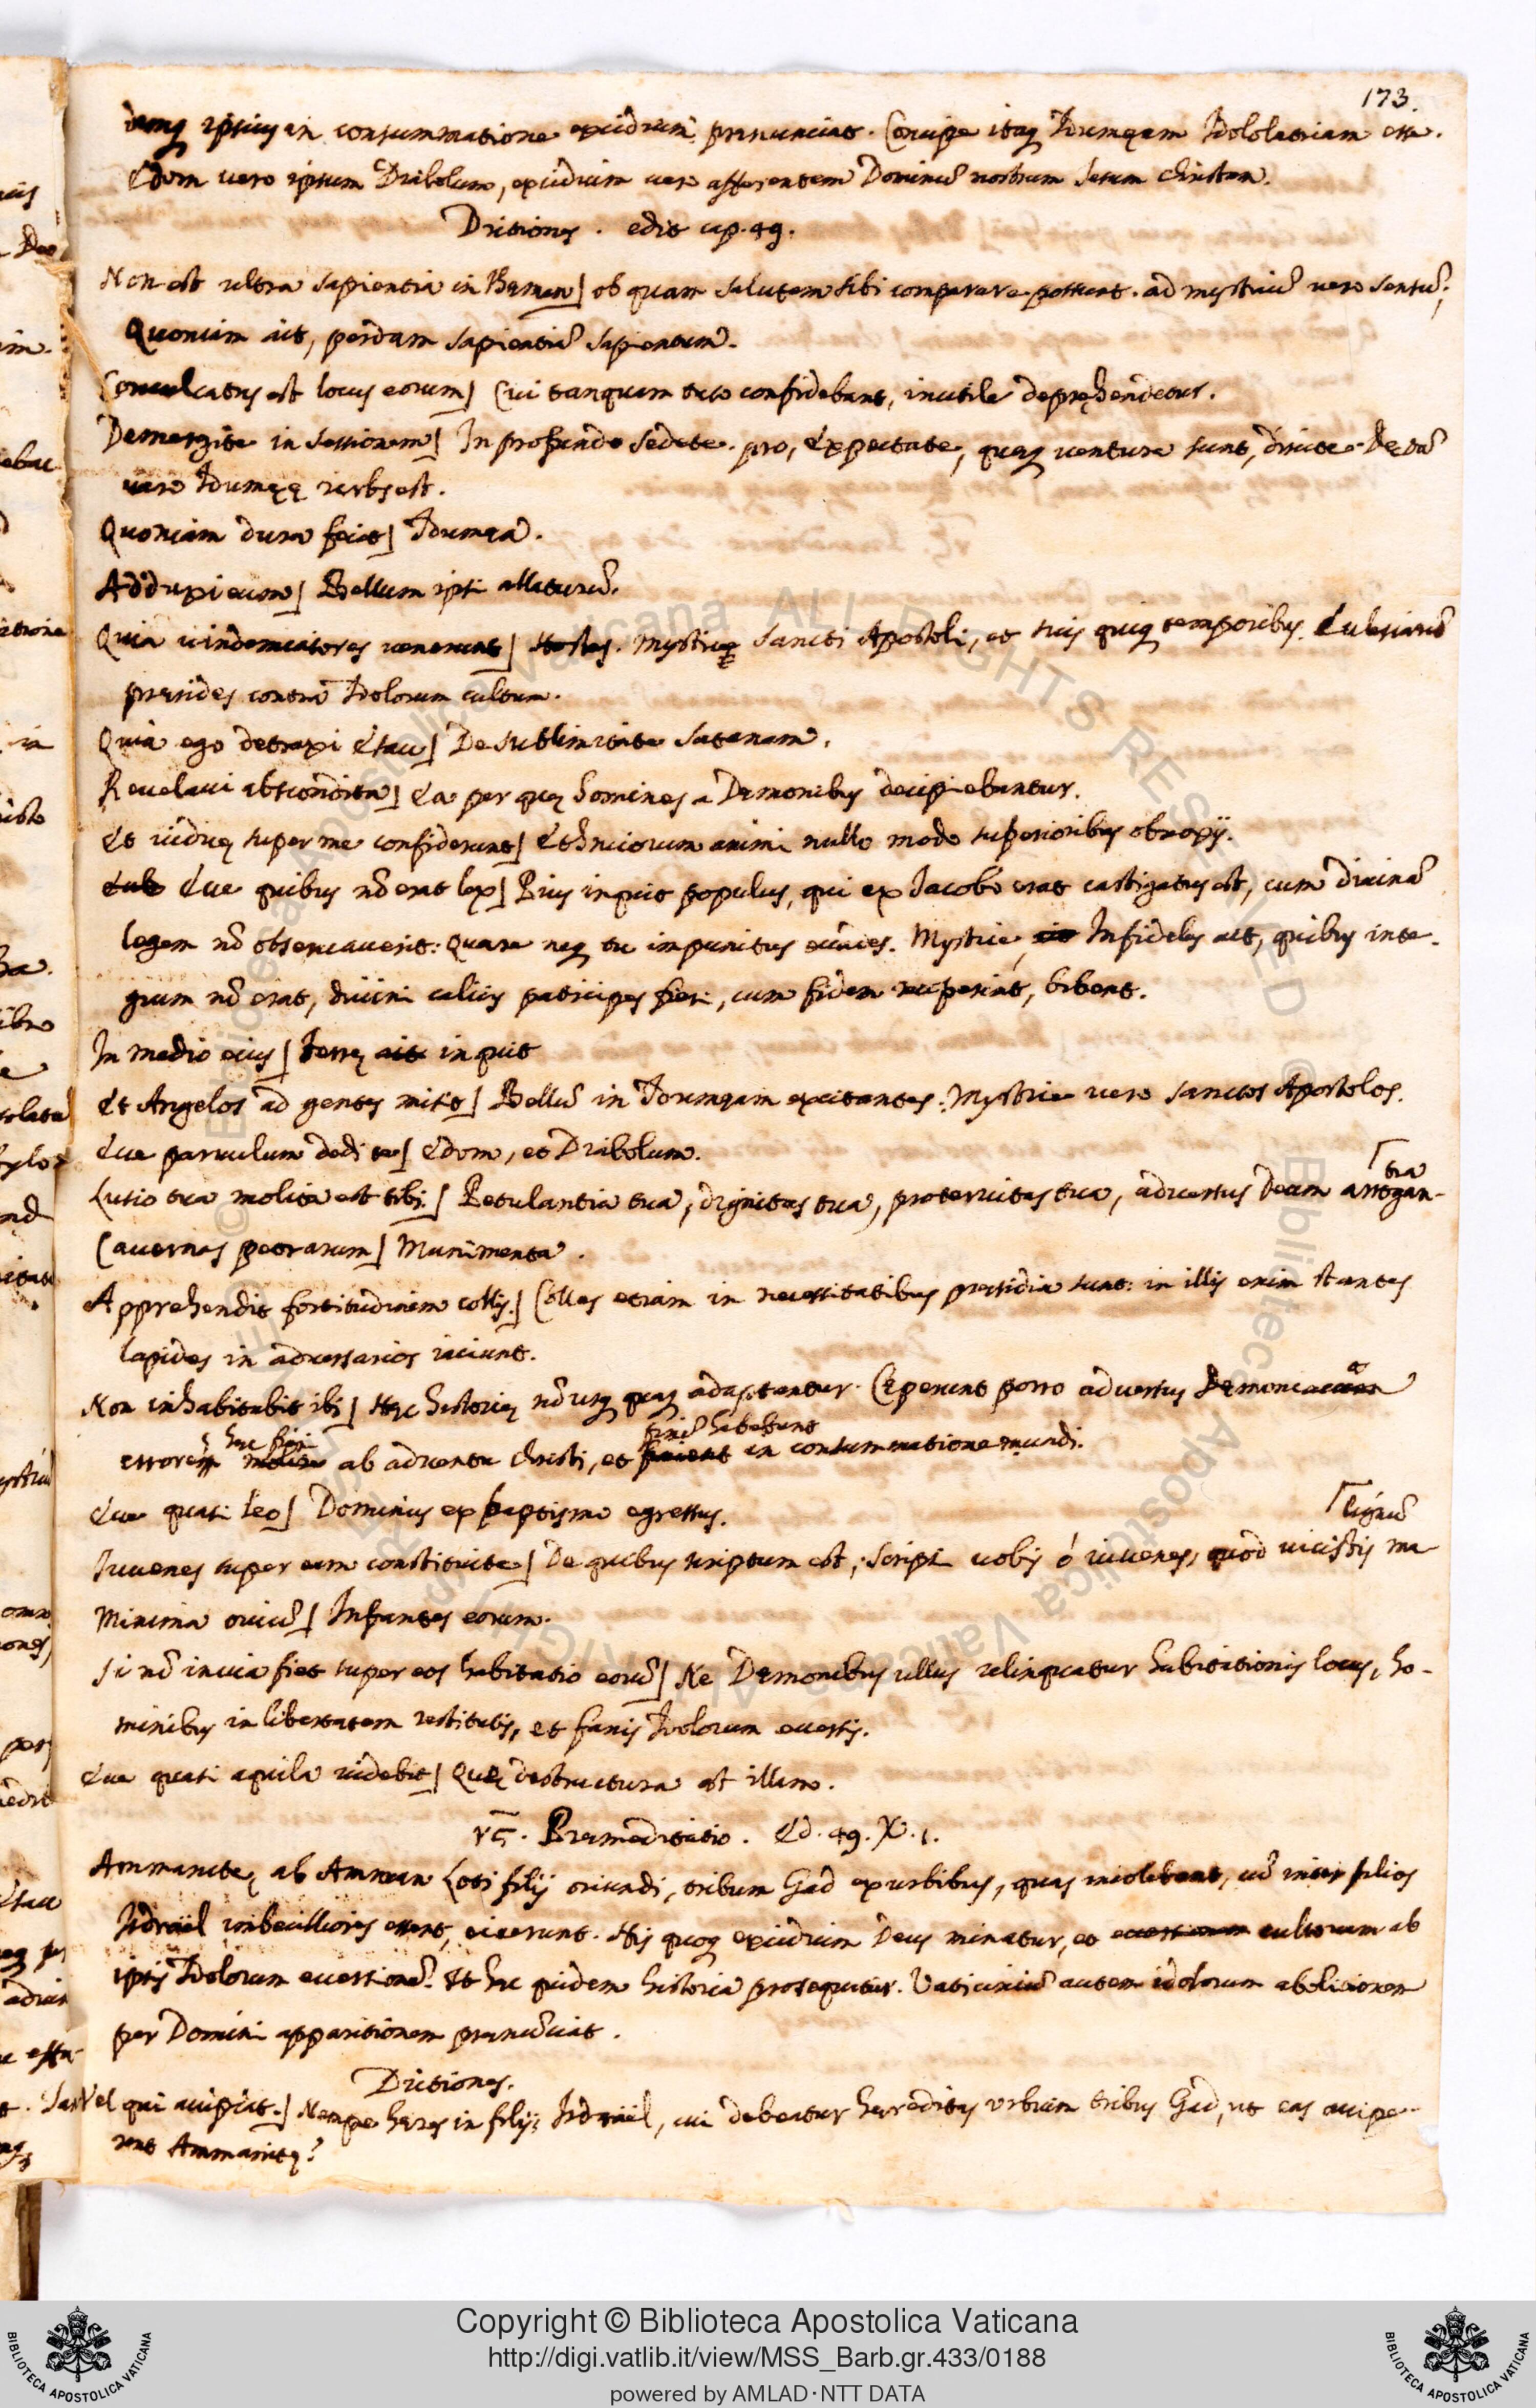 173.
demq ipsius in consummatione excidium prenunciat. Concipe itaq Idumęam Idololatriam esse.
Edom uero ipsum Diabolum, excidium uero afferentem Dominũ nostrum Jesum Christum.
Dictiones. edit cap. 49.
Non est ultra sapientia in Theman] ob quam salutem sibi comparare possent. ad mysticũ uero sensũ;
Quoniam ait, perdam sapientiã sapientum.
Conculcatus est locus eorum] Cui tanquam tuto confidebant, inutile depręhendetur.
Demergite in sessionem] In profundo sedete. pro, Expectate, quęq uentura sunt, discite. Dedã
uero Idumęę urbs est.
Quoniam dura fecit] Idumęa.
Adduxi eum] Bellum ipsi allaturũ.
Quia uindemiatores uenerunt] Hostes. Mysticę Sancti Apostoli, et suis quiq temporibus Eulesiarũ
presides contra Idolorum cultum.
Quia ego detraxi Esau] De sublimitate Satanam.
Reuelaui abscondita] Ea per quę homines a Demonibus decipiebantur.
Et uiduę super me confiderunt] Ethnicorum animi nullo modo superioribus obnoxij.
Ecce quibus nõ erat lex] Pius inquit populus, qui ex Jacobo erat castigatus est, cum diuinã
legem nõ obseruauerit: quare neq tu impunitus euades. Mystice, Infideles ait, quibus inte-
grum nõ erat, diuini calicis participes fieri, cum fidem receperint, bibent.
In medio eius] Terrę inquit
Et Angelos ad gentes misit] Bellũ in Idumęam excitantes. Mystice uero sanctos Apostolos.
Ecce paruulum dedi te] Edom, et Diabolum.
Lusio tua molita est tibi.] Petulantia tua, dignitas tua, proteruitas tua, aduersus Deum arrogan-
tia
Cauernas petrarum] Munimenta.
Apprehendit fortitudinem collis.] Colles etiam in necessitatibus presidia sunt: in illis enim stantes
lapides in aduersarios iaciunt.
Non inhabitabit ibi] Hęc historię nõ usq quaq adaptentur. Cęperunt porro aduersus Demoniacam
hęc fieri finẽ habebunt
errorem ab aduentu Christi, et in consummatione mundi.
Ecce quasi leo] Dominus ex baptismo egressus.
Iuuenes super eam constituite] De quibus scriptum est, Scripsi uobis ó iuuenes, quod uicistis ma-
lignũ
Minima ouiũ] Infantes eorum.
Si nõ inuia fiet super eos habitatio eorũ] Ne Demonibus ullus relinquatur habitationis locus, ho-
minibus in libertatem restitutis, et fanis Idolorum euersis.
Ecce quasi aquila uidebit] Quę destructura est illum.
Premeditatio. Ed. 49. X. 1.
Ammanitę ab Amman Loti filij oriundi, tribum Gad ex urbibus, quas incolebant, cũ inter filios
Isdraël imbecilliores essent, eiecerunt. His quoq excidium Deus minatur, et cultorum ab
ipsis Idolorum euersionẽ. Et hęc quidem historia prosequitur. Vaticiniũ autem idolorum abolitionem
per Domini apparitionem prenũciat.
Dictiones.
Vel qui accipiat.] Nempe heres in filijs Isdraël, cui debeatur hereditas urbium tribus Gad, ut eas accipe-
rent Ammanitę?
Copyright © Biblioteca Apostolica Vaticana
http://digi.vatlib.it/view/MSS_Barb.gr.433/0188
powered by AMLAD·NTT DATA
BIBLIOTECA APOSTOLICA VATICANA
BIBLIOTECA APOSTOLICA VATICANA